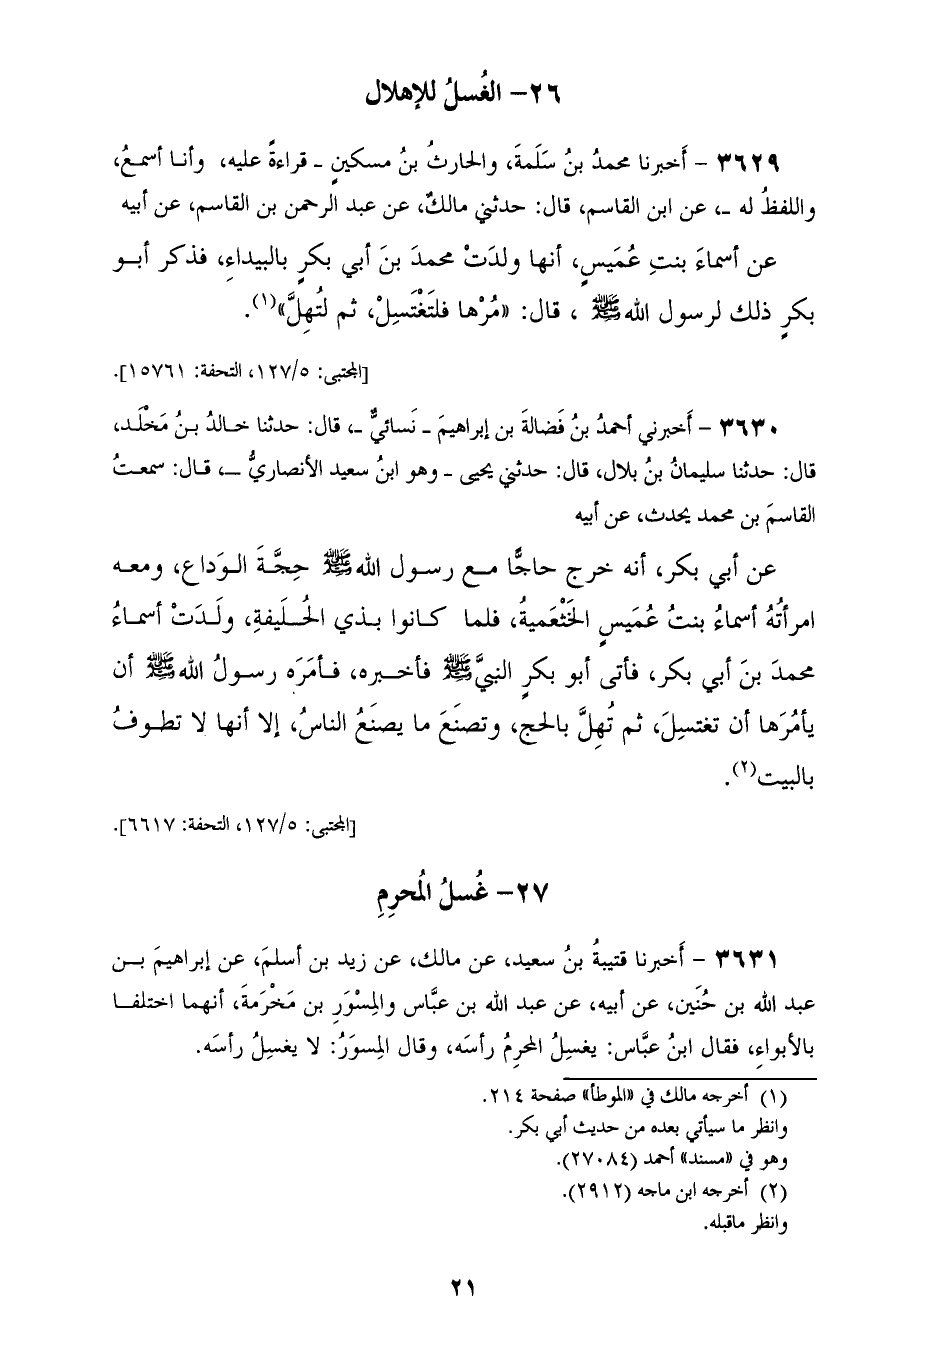 ٢٦- الغُسلُ للإهلال
٣٦٢٩ - أَخبرنا محمدُ بنُ سَلَمةَ، والحارثُ بنُ مسكينٍ - قراءةً عليه، وأنا أسمعُ،
واللفظُ له -، عن ابن القاسم، قال: حدثني مالكٌ، عن عبد الرحمن بن القاسم، عن أبيه
عن أسماءَ بنتِ عُمَيسٍ، أنها ولدَتْ محمدَ بنَ أبي بكرٍ بالبيداءِ، فذكر أبو
بكرٍ ذلك لرسول الله ﷺ ، قال: «مُرْها فلتَغْتَسِلْ، ثم لتُهِلَّ»(١).
[المجتبى: ١٢٧/٥، التحفة: ١٥٧٦١].
٣٦٣٠ - أَخبرني أحمدُ بنُ فَضالةَ بن إبراهيمَ - نَسائيٌّ -، قال: حدثنا خالدُ بنُ مَخْلَد،
قال: حدثنا سليمانُ بنُ بلال، قال: حدثني يحيى - وهو ابنُ سعيد الأنصاريُّ -، قال: سمعتُ
القاسمَ بن محمد يحدث، عن أبيه
عن أبي بكر، أنه خرج حاجًّا مع رسول الله ﷺ حِجَّةَ الوَداع، ومعه
امرأتُهُ أسماءُ بنتُ عُمَيسٍ الخَثْعَميةُ، فلما كانوا بذي الحُلَيفةِ، ولَدَتْ أسماءُ
محمدَ بنَ أبي بكر، فأتى أبو بكرٍ النبيَّ ﷺ فأخبره، فأمَرَه رسولُ الله ﷺ أن
يأمُرَها أن تغتسِلَ، ثم تُهِلَّ بالحج، وتصنَعَ ما يصنَعُ الناسُ، إلا أنها لا تطوفُ
بالبيت(٢).
[المجتبى: ١٢٧/٥، التحفة: ٦٦١٧].
٢٧- غُسلُ المُحرِمِ
٣٦٣١ - أَخبرنا قتيبةُ بنُ سعيد، عن مالك، عن زيد بن أسلمَ، عن إبراهيمَ بن
عبد الله بن حُنَين، عن أبيه، عن عبد الله بن عبَّاس والمِسْوَرِ بن مَخْرَمةَ، أنهما اختلفا
بالأبواءِ، فقال ابنُ عبَّاس: يغسِلُ المحرِمُ رأسَه، وقال المِسورُ: لا يغسِلُ رأسَه.
(١) أخرجه مالك في «الموطأ» صفحة ٢١٤.
وانظر ما سيأتي بعده من حديث أبي بكر.
وهو في «مسند» أحمد (٢٧٠٨٤).
(٢) أخرجه ابن ماجه (٢٩١٢).
وانظر ماقبله.
٢١